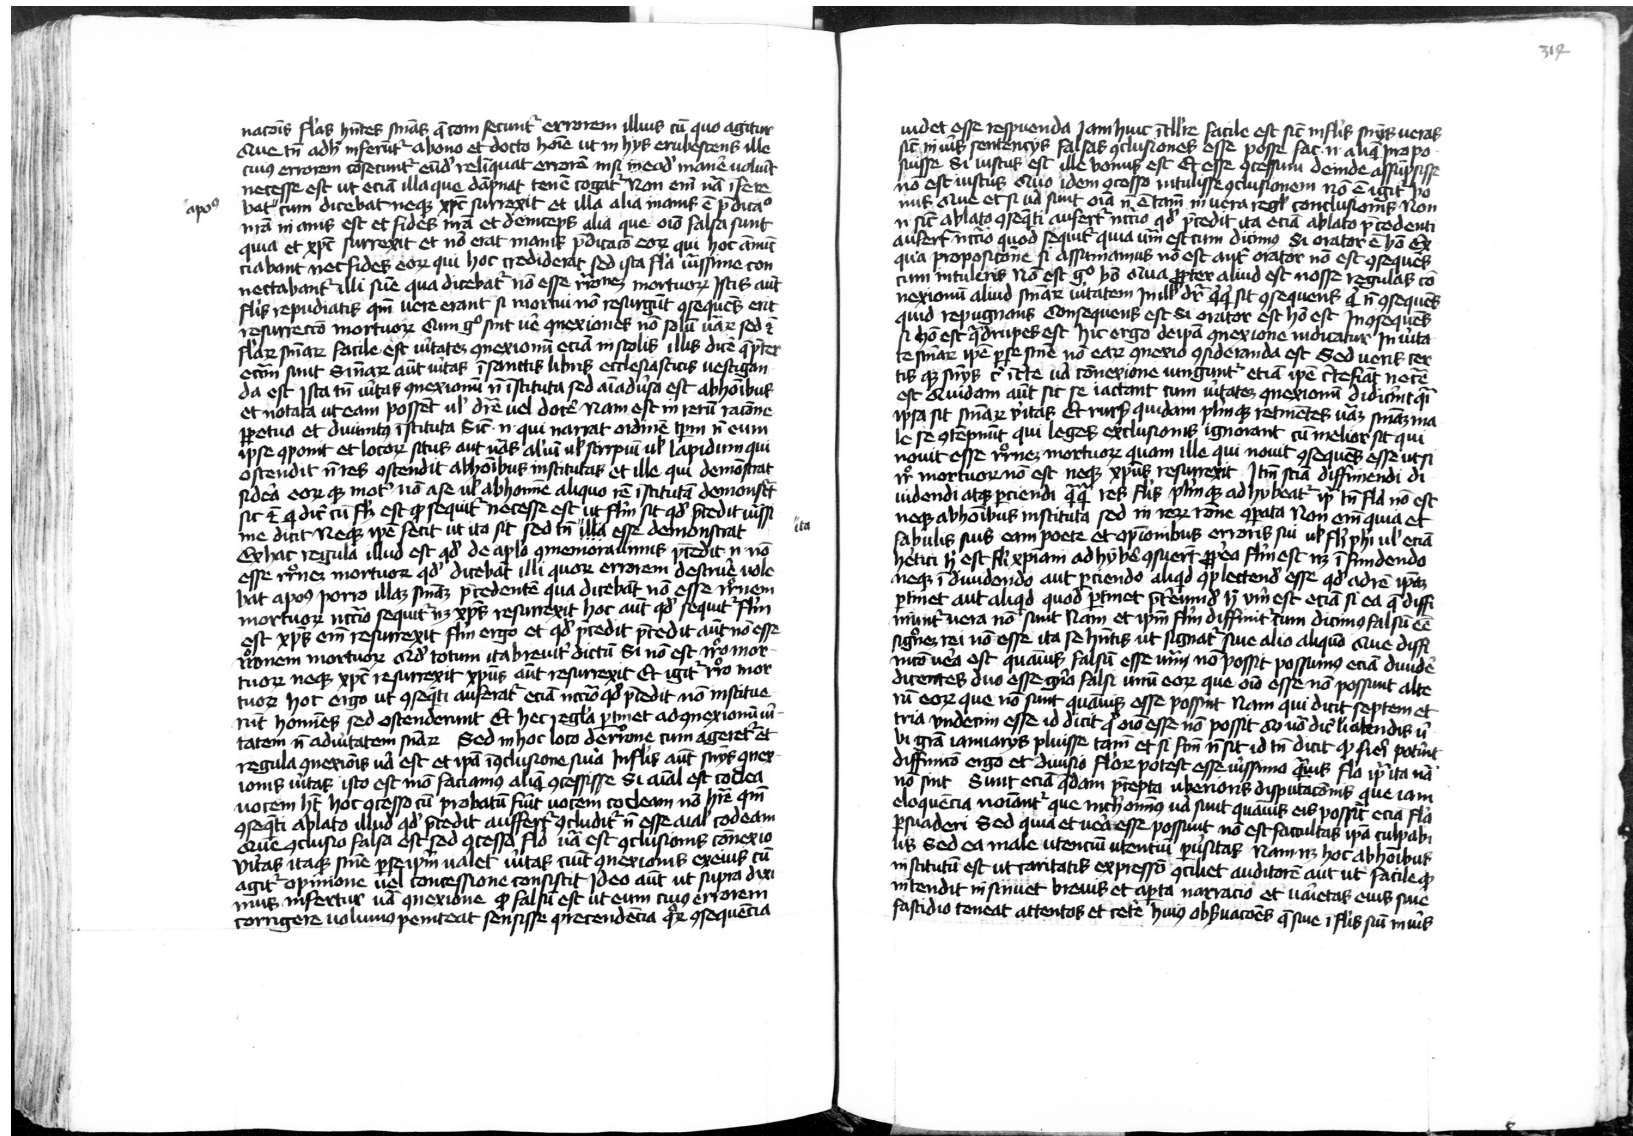 nacōis fl'as hn̄tes sn̄ias q̄ com secunt᷑ errorem illius cū quo agitur
Que tn̄ adh' inferūt᷑ abono et docto hoīe ut in hys erubescens ille
cuiꝰ errorem cōsecunt᷑ eūd' relīquat errorē in si in eod' manē voluīt
necesse est ut eciā illa que dāpnat tenē cogat᷑ Non em̄ nā ifere
apoꝰ
bat cum dicebat neqꝫ xp̄c surrexit et illa alia inanis ē p̄dicaº
nr̄a in anis est et fides nr̄a et deinceps alia que oīo falsa sunt
quia et xp̄c surrexit et nō erat inanis p̄dicacō eoꝝ qui hoc ānūc
ciabant nec fides eoꝝ qui hoc crediderāt sed ista fl'a ūissime con
nectabant᷑ illi sn̄ie qua dicebāt᷑ nō esse rr̄onez mortuoꝝ Istis aūt
fl'is repudiatis qm̄ vere erant si mortui nō resurgūt ꝯsequēs erit
resurrectō mortuoꝝ Cum gº sint ūe ꝯnexiones nō solū ūaꝝ sed ꝫ
fl'aꝝ sn̄iaꝝ facile est ūitatez ꝯnexionū eciā in scolis illis dicē q̄ p̄ter
ecc̄iam sunt Sn̄iaꝝ aūt ūitas ī sanctis libris ecclesiasticis vestigan
da est Ista tn̄ ūitas ꝯnexionū n̄ īstituta sed aīaduīsa est abhoībus
et notata ut eam possent ul' dīce vel docē Nam est in rerū racōne
ꝑpetuo et diuinitꝰ īstituta Sic̄ n̄ qui narrat ordinē tꝑm n̄ eum
ipse ꝯponit et locoꝝ situs aut nās al'iū ul' stirpiū ul' lapidum qui
ostendit n̄ res ostendit abhoībus institutas et ille qui demōstrat
sidera eoꝝ qꝫ motꝰ nō a se ul' abhomīe aliquo rē īstitutā demonstrat
sic ꝫ q dic̄ cū fl'm est qꝫ sequit᷑ necesse est ut fl'm sit qd' p̄cedit ūissi
me dicit Neqꝫ ip̄e fecit ut ita sit sed tn̄ illa esse demonstrat
ita
Ex hac regula illud est qd' de apl'o ꝯmemorauimus p̄cedit n̄ nō
esse rr̄onez mortuoꝝ qd' dicebāt illi quoꝝ errorem destruē vole
bat apoꝰ porro illaz sn̄iaz p̄cedentē qua dicebāt nō esse rr̄onem
mortuoꝝ nccīo sequit᷑ nꝫ xp̄s resurrexit hoc aut qd' sequit᷑ fl'm
est xp̄s em̄ resurrexit fl'm ergo et qd' p̄cedit p̄cedit aūt nō esse
rr̄onem mortuoꝝ Qd' totum ita breuit᷑ dictū Si nō est rr̄o mor-
tuoꝝ neqꝫ xp̄c resurrexit xp̄us aūt resurrexit Et igit᷑ rr̄o mor
tuoꝝ hoc ergo ut ꝯseqn̄ti auferat᷑ eciā nccīo qd' p̄cedit nō institue
rūt homīes sed ostenderunt Et hec regl'a p̄tinet ad ꝯnexionū ūi-
tatem n̄ adūitatem sn̄iaꝝ Sed in hoc loco d'rr̄one cum ageret᷑ et
regula ꝯnexiōis ūa est et ip̄a īꝯclusione sn̄ia Infl'is aūt sn̄ys ꝯnex
ionis ūitas isto est mō faciamꝰ aliqꝫ ꝯcessisse Si aīal est coclea
vocem ht̄ hoc ꝯcesso cū probatū fūit vocem cocleam nō hr̄e qm̄
ꝯseqn̄ti ablato illud qd' p̄cedit auffert᷑ ꝯcludit᷑ n̄ esse aīal cocleam
Que ꝯclusio falsa est sed ꝯcesso flº ūa est ꝯclusionis cōnexio
Vītas itaqꝫ sn̄ie ꝑ se ip̄m ualet ūitas aūt ꝯnexionis exeius cū
agit᷑ opinione vel concessione consistit Ideo aūt ut supra dixi
mus infertur ūa ꝯnexione qꝫ falsū est ut eum cuiꝰ errorem
corrigere volumꝰ peniteat sensisse p̄cedencia qꝝ ꝯsequēcia
314
uidet esse respuenda Iam huīc ītell'īe facile est sic̄ infl'is sn̄ys ueras
sic̄ in ūis sentencys falsas ꝯclusiones esse posse fac n̄ aliqꝫ propo-
suisse Si iustus est ille bonus est Et esse ꝯcessum deinde assūpsisse
nō est iustus Quo idem ꝯcesso intulisse ꝯclusionem nō ē igit᷑ bo
nus Que et si ūa sunt oīa n̄ ē tam̄ in uera regl'a conclusionis Non
n̄ sic̄ ablato ꝯseqn̄ti aufert᷑ nccīo qd' p̄cedit ita eciā ablato p̄cedenti
aufert᷑ nccīo quod sequit᷑ quia ūm est cum dicimꝰ Si orator ē hō ē Ex
qua propositōne si assumamus nō est aut᷑ orator nō est ꝯsequēs
cum intuleris Nō est gº hō Qua ꝓpter aliud est nosse regulas cō
nexionū aliud sn̄iaꝝ ūitatem In ill' dr̄ qͥd sit ꝯsequens qͥd n̄ ꝯsequēs
quid repugnans Consequens est Si orator est hō est Inꝯsequēs
si hō est q̄drupes est hic ergo deip̄a ꝯnexione iudicatur In ūita
te sn̄iaꝝ ip̄e ꝑ se sn̄ie nō eaꝝ ꝯnexio ꝯsideranda est Sed veris cer
tis qꝫ sn̄ys cū īcte ūa cōnexione iungunt᷑ etiā ip̄e c̄te fiāt necē
est Quidam aūt sic se iactant cum ūitatez ꝯnexionū didicīt qͣi
ipsa sit sn̄iaꝝ ūitas Et rursꝰ quidam pl'īqꝫ retinētes ūaz sn̄iaz ma
le se ꝯtēpnūt qui leges ex̄clusionis ignorant cū melior sit qui
novit esse rr̄onez mortuoꝝ quam ille qui nouit ꝯsequēs esse ut si
rr̄º mortuoꝝ nō est neqꝫ xp̄us resurrexit Itm̄ sciā diffiniendi di
uidendi atqꝫ ꝑciendi qͣqͣ res fl'is pl'īqꝫ ad hybeat᷑ ip̄a tn̄ fl'a nō est
neqꝫ abhoībus instituta sed in reꝝ rōne ꝯꝑata Non em̄ quia et
fabulis suis eam poete et opīonibus erroris sui ul' fl'i phī ul' eciā
hētici h' est fl'i xp̄iani ad hybē ꝯsuer̄t ꝓp̄ea fl'm est nꝫ ī finiendo
neqꝫ ī diuidendo aut ꝑciendo aliqͥd ꝯplectend' esse qd' adrē ip̄az
p̄tinet aut aliqͥd quod p̄tinet p̄t̄eund' h' ūm est eciā si ea q̄ diffi
niunt᷑ vera nō sunt Nam et ip̄m fl'm diffinit᷑ cum dicimꝰ falsū eē
signōez rei nō esse ita se hn̄tis ut signat᷑ siue alio aliquō Que diffi
nicō uēa est quāuis falsū esse ūm nō possit possumꝰ eciā diuidē
dicentes duo esse gn̄a falsi unū eoꝝ que oīo esse nō possunt alte
rū eoꝝ que nō sunt quāuis esse possint Nam qui dicit septem et
tria vndecim esse id dicit qd' oīo esse nō possit Qi ūo dic̄ kalendis ū
bi grā ianuarys pluisse tam̄ et si fc̄m n̄ sit id tn̄ dicit qꝫ fieri potūit
diffinitō ergo et diuisio fl'oꝝ potest esse ūissima q̄uis fl'a ip̄a ita ūa
nō sint Sunt eciā q̄dam p̄cepta vberioris disputacōnis que iam
eloquēcia noīant᷑ que nich'omīꝰ ūa sunt quāuis eis possint eciā fl'a
ꝑsuaderi Sed quia et uēa esse possunt nō est facultas ip̄a culpabi
lis Sed ea male utenciū utentiū ꝑuīsitas Nam nꝫ hoc abhoībus
institutū est ut caritatis expressō ꝯciliet auditorē aut ut facile qꝫ
intendit insinuet breuis et aꝑta narracio et uarietas eius sine
fastidio teneat attentos et cet̄e huiꝰ obs̄uacōes q̄ siue ī fl'is siue in ūis